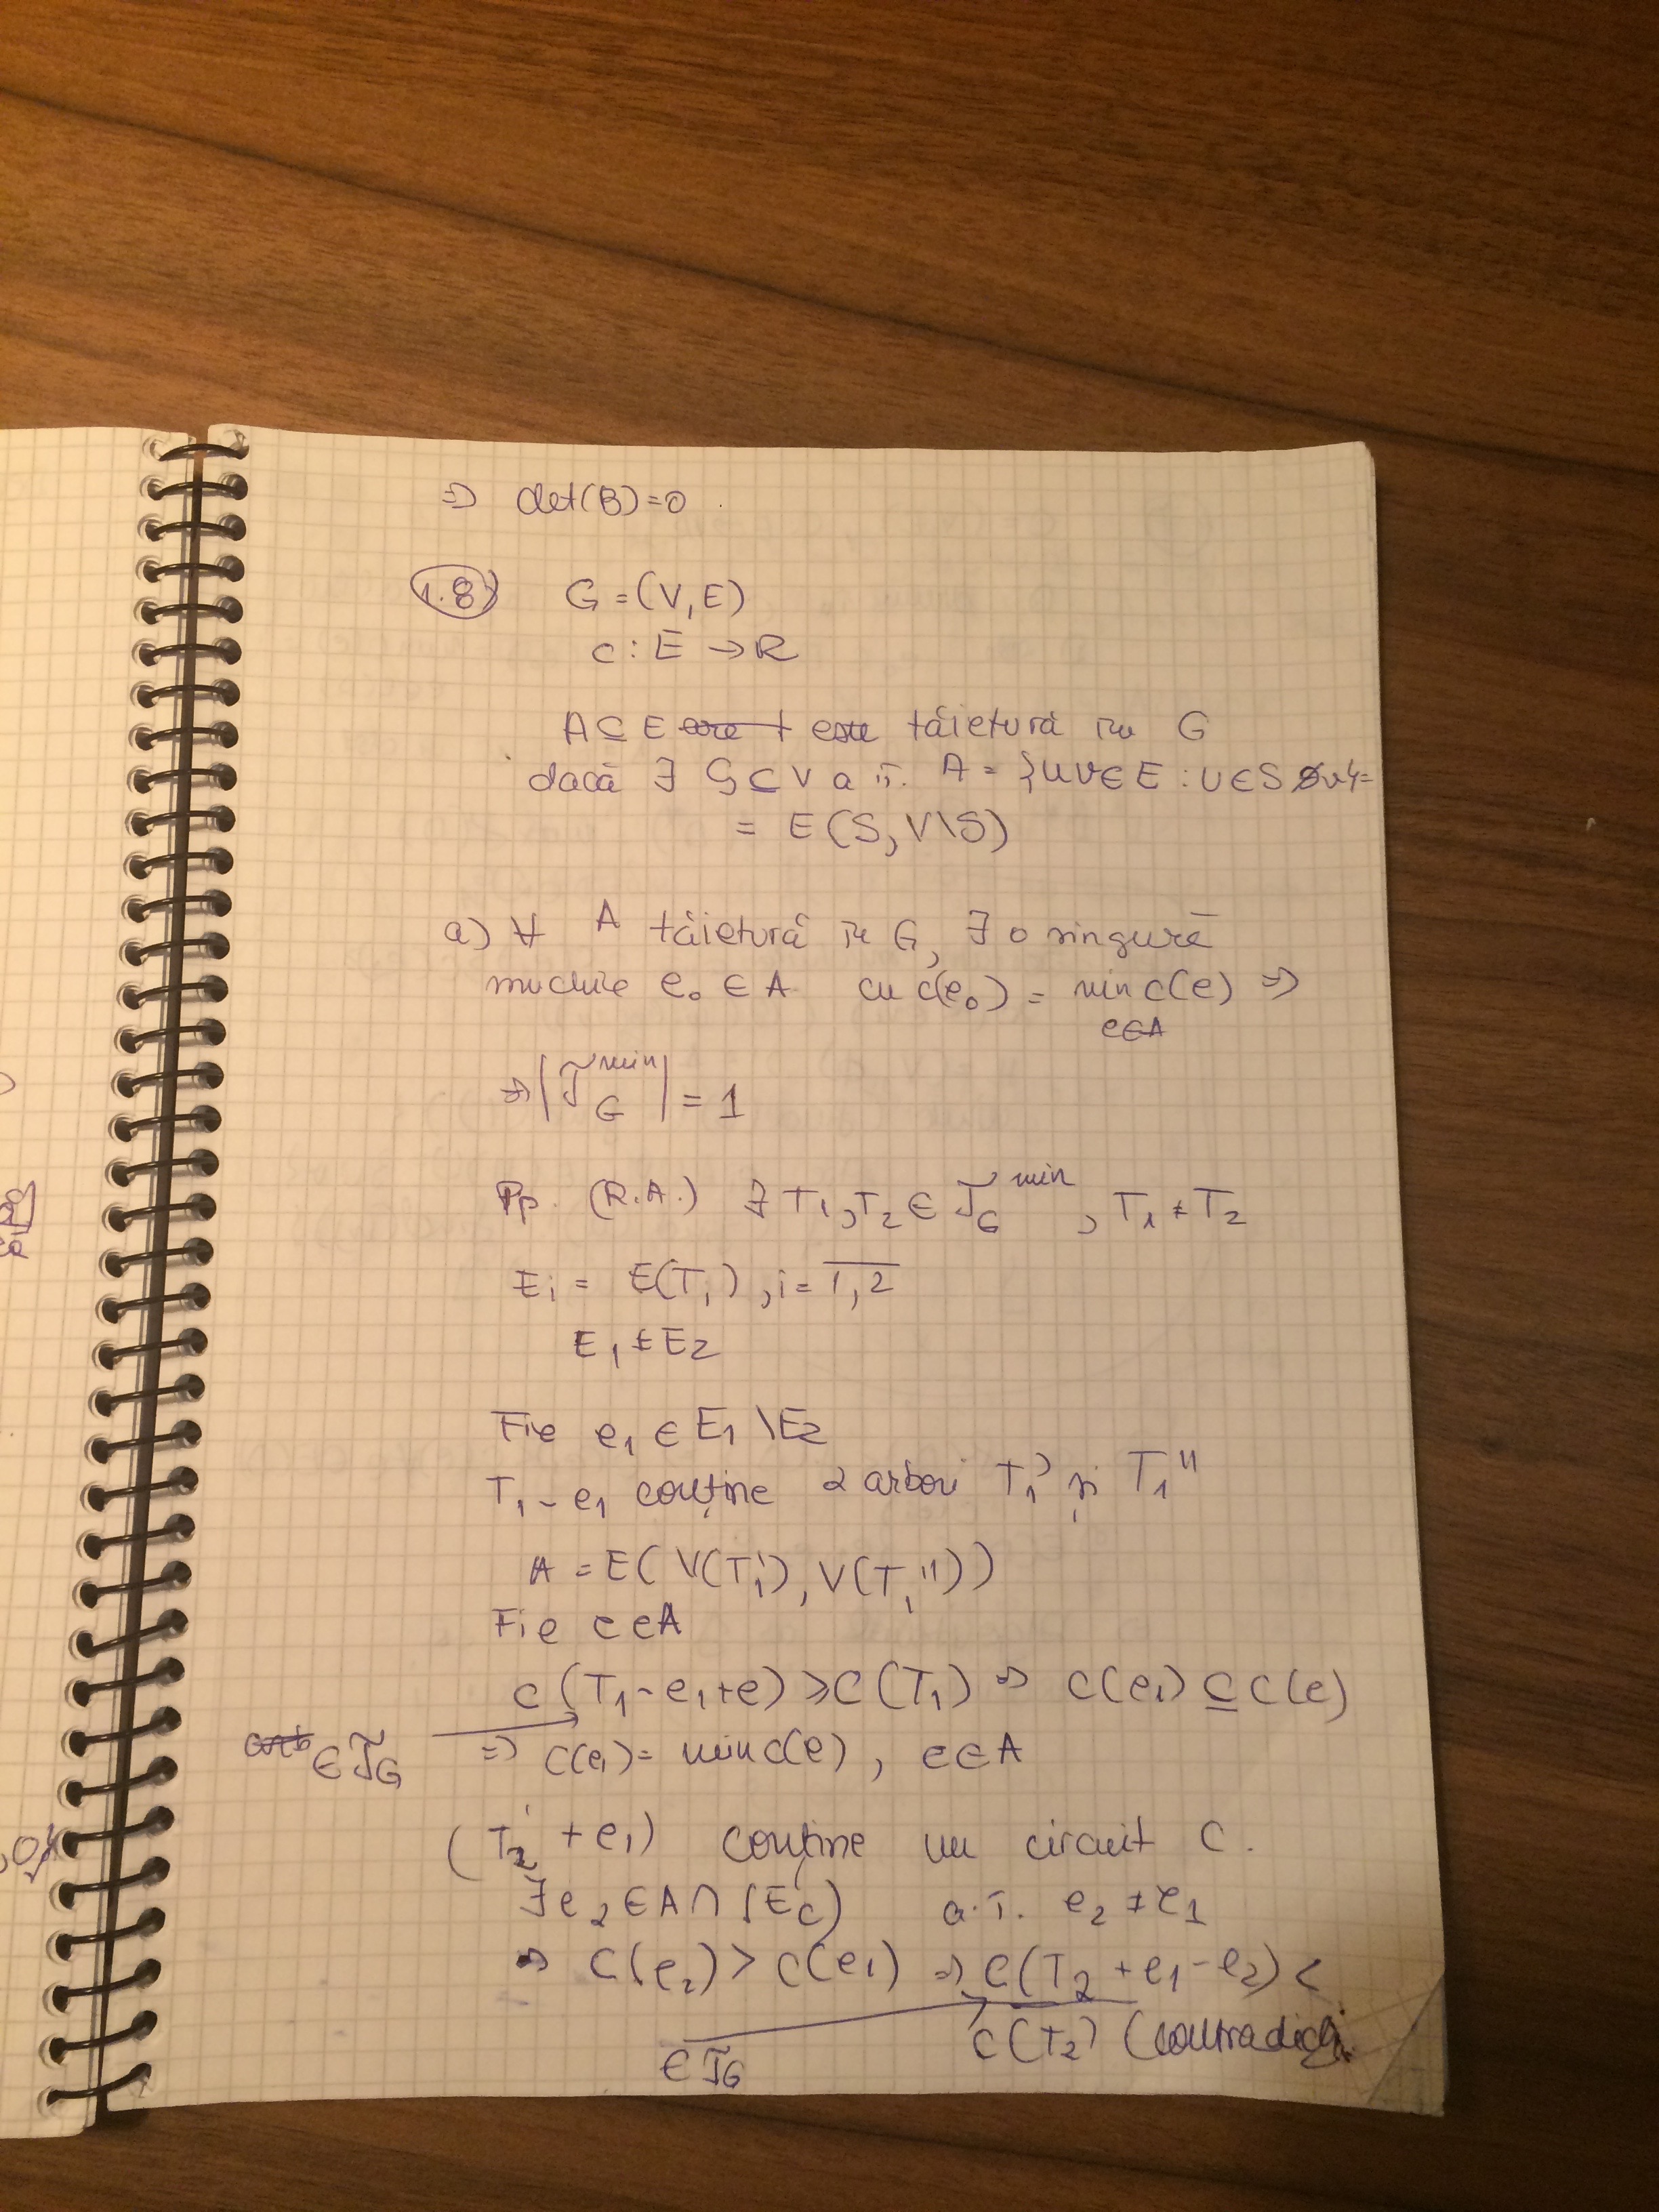 ⇒ det(B)=0.
1.8) G=(V,E)
c: E → R
A⊆E este tăietură în G
dacă ∃ S⊆V a.î. A = {uv∈E : u∈S ∌v}=
= E(S, V\S)
a) ∀ A tăietură în G, ∃ o singură
muchie e₀ ∈ A cu c(e₀) = min c(e) ⇒
e∈A
⇒ |T_G^min| = 1
Pp. (R.A.) ∃ T₁, T₂ ∈ T_G^min, T₁ ≠ T₂
Eᵢ = E(Tᵢ), i = 1,2
E₁ ≠ E₂
Fie e₁ ∈ E₁ \ E₂
T₁ - e₁ conține 2 arbori T₁' și T₁''
A = E(V(T₁'), V(T₁''))
Fie e∈A
c(T₁-e₁+e) ≥ c(T₁) ⇒ c(e₁) ≤ c(e)
∈ T_G ⇒ c(e₁) = min c(e), e∈A
(T₂ + e₁) conține un circuit C.
∃ e₂ ∈ A ∩ (E_C) a.î. e₂ ≠ e₁
⇒ c(e₂) > c(e₁) ⇒ c(T₂ + e₁ - e₂) <
c(T₂) (contradicție
∈ T_G